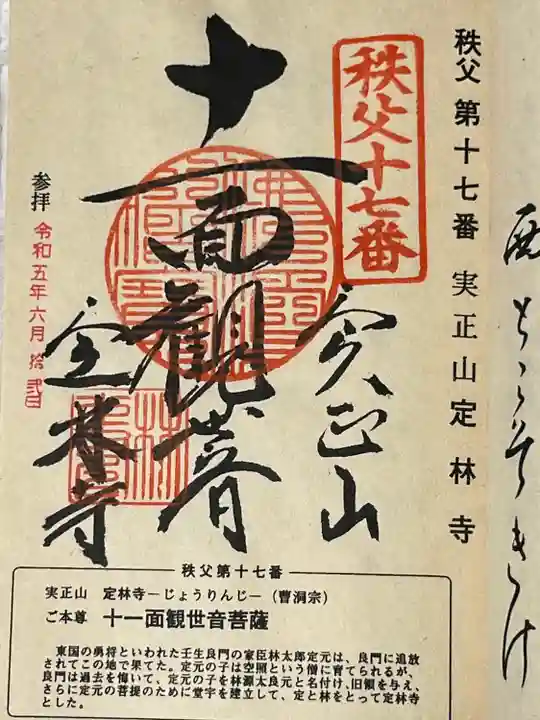 秩父 第十七番 実正山定林寺
秩父十七番
実正山
十一面觀音
定林寺
参拝 令和五年六月 拾弐日
秩父第十七番
実正山 定林寺－じょうりんじ－（曹洞宗）
ご本尊 十一面観世音菩薩
東国の勇将といわれた壬生良門の家臣林太郎定元は、良門に追放
されてこの地で果てた。定元の子は空照という僧に育てられるが、
良門は過去を悔いて、定元の子を林源太良元と名付け、旧領を与え、
さらに定元の菩提のために堂宇を建立して、定と林をとって定林寺
とした。